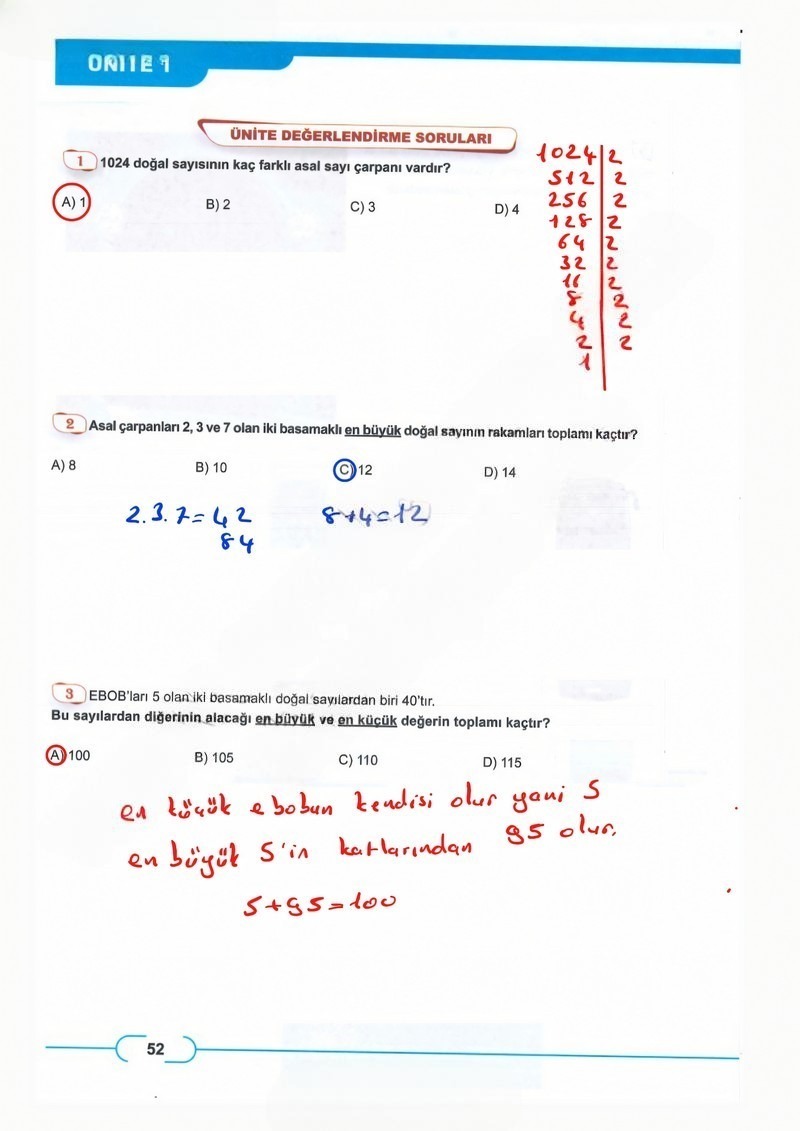 ÜNİTE 1
ÜNİTE DEĞERLENDİRME SORULARI
1 1024 doğal sayısının kaç farklı asal sayı çarpanı vardır?
A) 1 B) 2 C) 3 D) 4
1024 2
512 2
256 2
128 2
64 2
32 2
16 2
8 2
4 2
2 2
1
2 Asal çarpanları 2, 3 ve 7 olan iki basamaklı en büyük doğal sayının rakamları toplamı kaçtır?
A) 8 B) 10 C) 12 D) 14
2.3.7=42 8+4=12
84
3 EBOB'ları 5 olan iki basamaklı doğal sayılardan biri 40'tır.
Bu sayılardan diğerinin alacağı en büyük ve en küçük değerin toplamı kaçtır?
A) 100 B) 105 C) 110 D) 115
en küçük ebobun kendisi olur yani 5
en büyük 5'in katlarından 95 olur.
5+95=100
52